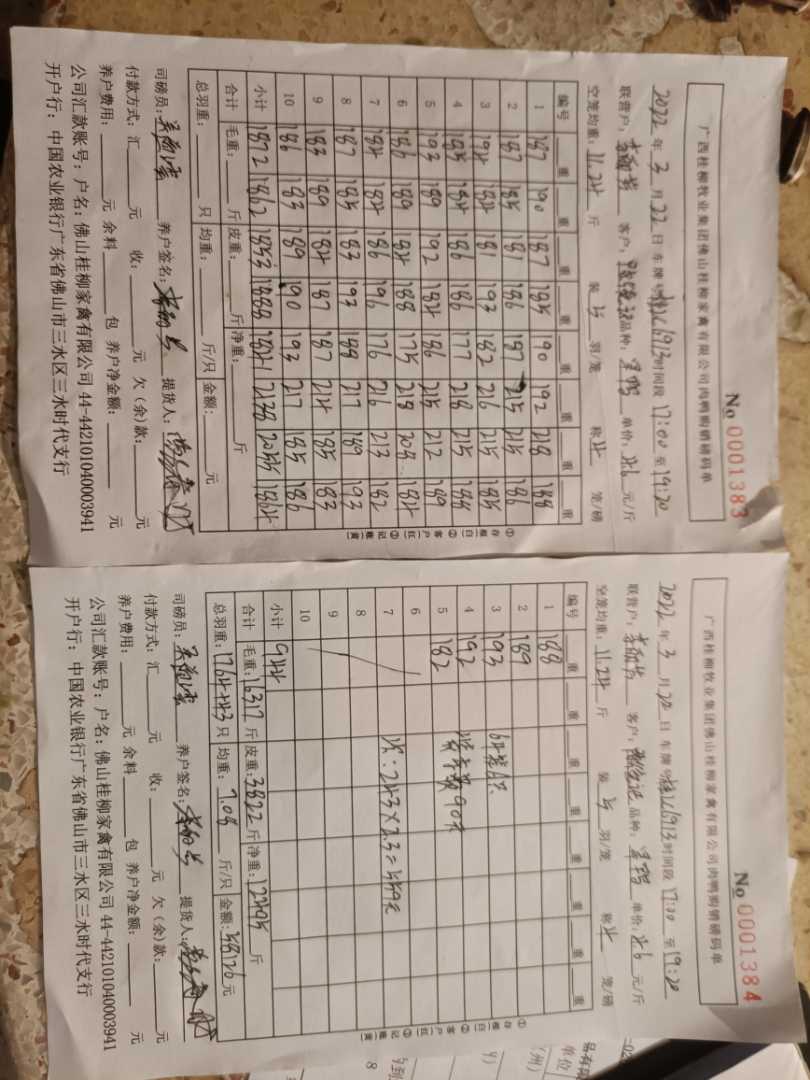 No 0001383
广西桂柳牧业集团佛山桂柳家禽有限公司肉鸭购销磅码单
2022 年 3 月 22 日 车牌 6913 时间段 17:00 至 19:20
联营户: 客户: 品种: 单价: 4.6 元/斤
空笼均重: 11.24 斤 装 羽/笼 称 4 笼/磅
编号 重 重 重 重 重 重 重 重
1 187 190 187 185 190 192 218 188
2 187 185 181 186 187 215 215 186
3 194 184 181 193 182 216 215 185
4 185 184 186 186 177 218 215 188
5 193 189 192 184 186 215 212 189
6 186 189 184 188 175 218 208 184
7 184 184 186 196 176 216 213 182
8 187 185 183 193 188 217 189 193
9 183 189 184 187 187 214 185 183
10 186 183 189 190 193 217 185 186
小计 1872 1862 1853 1888 1841 2138 2055 1864
合计 毛重: 斤 皮重: 斤 净重: 斤
总羽重: 只 均重: 斤/只 金额: 元
①存根(白) ②客户(红) ③记账(黄)
司磅员: 养户签名: 提货人:
付款方式: 汇 元 收: 元 欠(余)款: 元
养户费用: 元 余料 包 养户净金额: 元
公司汇款账号: 户名: 佛山桂柳家禽有限公司 44-442101040003941
开户行: 中国农业银行广东省佛山市三水区三水时代支行
No 0001384
广西桂柳牧业集团佛山桂柳家禽有限公司肉鸭购销磅码单
2022 年 3 月 22 日 车牌 6913 时间段 17:00 至 19:20
联营户: 客户: 品种: 单价: 4.6 元/斤
空笼均重: 11.24 斤 装 羽/笼 称 4 笼/磅
编号 重 重 重 重 重 重 重 重
1 188
2 189
3 193
4 192
5 182
6
7 243×2.3=559元
8
9
10
小计 944
合计 毛重: 16317 斤 皮重: 3822 斤 净重: 12495 斤
总羽重: 只 均重: 7.08 斤/只 金额: 58126 元
①存根(白) ②客户(红) ③记账(黄)
司磅员: 养户签名: 提货人:
付款方式: 汇 元 收: 元 欠(余)款: 元
养户费用: 元 余料 包 养户净金额: 元
公司汇款账号: 户名: 佛山桂柳家禽有限公司 44-442101040003941
开户行: 中国农业银行广东省佛山市三水区三水时代支行